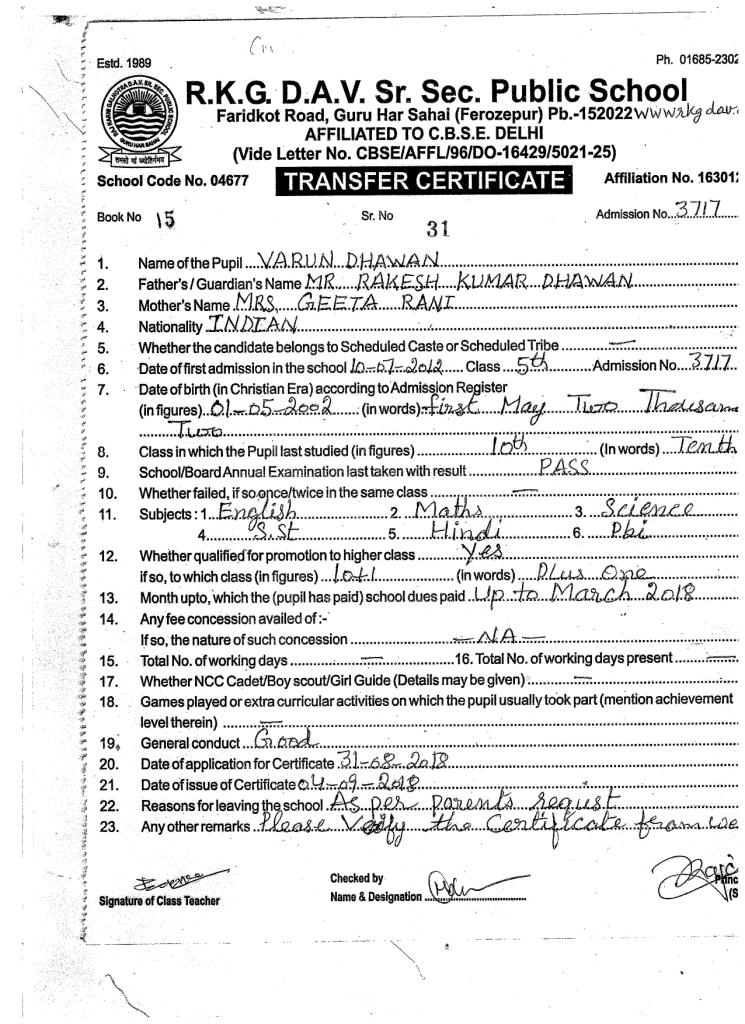 Estd. 1989
Ph. 01685-2302
R.K.G. D.A.V. Sr. Sec. Public School
Faridkot Road, Guru Har Sahai (Ferozepur) Pb.-152022 wwwrkgdav.
AFFILIATED TO C.B.S.E. DELHI
(Vide Letter No. CBSE/AFFL/96/DO-16429/5021-25)
School Code No. 04677 TRANSFER CERTIFICATE Affiliation No. 16301
Book No 15 Sr. No 31 Admission No. 3717
1. Name of the Pupil VARUN DHAWAN
2. Father's / Guardian's Name MR. RAKESH KUMAR DHAWAN
3. Mother's Name MRS. GEETA RANI
4. Nationality INDIAN
5. Whether the candidate belongs to Scheduled Caste or Scheduled Tribe —
6. Date of first admission in the school 10-07-2012 Class 5th Admission No. 3717
7. Date of birth (in Christian Era) according to Admission Register
(in figures) 01-05-2002 (in words) first May Two Thousan
Two
8. Class in which the Pupil last studied (in figures) 10th (In words) Tenth
9. School/Board Annual Examination last taken with result PASS
10. Whether failed, if so once/twice in the same class —
11. Subjects : 1. English 2. Maths 3. Science
4. S.St 5. Hindi 6. Pbi
12. Whether qualified for promotion to higher class Yes
if so, to which class (in figures) 10+1 (in words) Plus One
13. Month upto, which the (pupil has paid) school dues paid Up to March 2018
14. Any fee concession availed of :-
If so, the nature of such concession — NA —
15. Total No. of working days — 16. Total No. of working days present —
17. Whether NCC Cadet/Boy scout/Girl Guide (Details may be given) —
18. Games played or extra curricular activities on which the pupil usually took part (mention achievement
level therein) —
19. General conduct Good
20. Date of application for Certificate 31-08-2018
21. Date of issue of Certificate 04-09-2018
22. Reasons for leaving the school As per parents request
23. Any other remarks Please Verify the Certificate from we
Signature of Class Teacher
Checked by
Name & Designation
Princ
(S